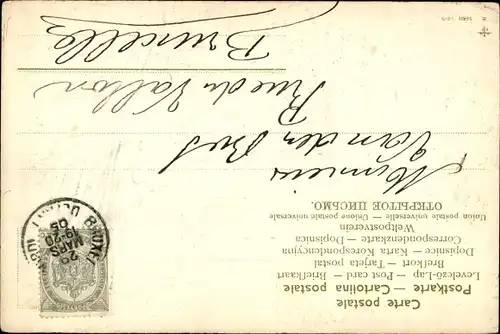 Carte postale
Postkarte — Cartolina postale
Levelező-Lap — Post card — Briefkaart
Brefkort — Tarjeta postal
Dopisnice — Karta Korespondencyjna
Correspondenzkarte — Dopisnica
Weltpostverein
Union postale universelle — Unione postale universale
ОТКРЫТОЕ ПИСЬМО.
Monsieur
Van den Bus
Rue du Vallon
Bruxelles
29
MARS
19-20
05